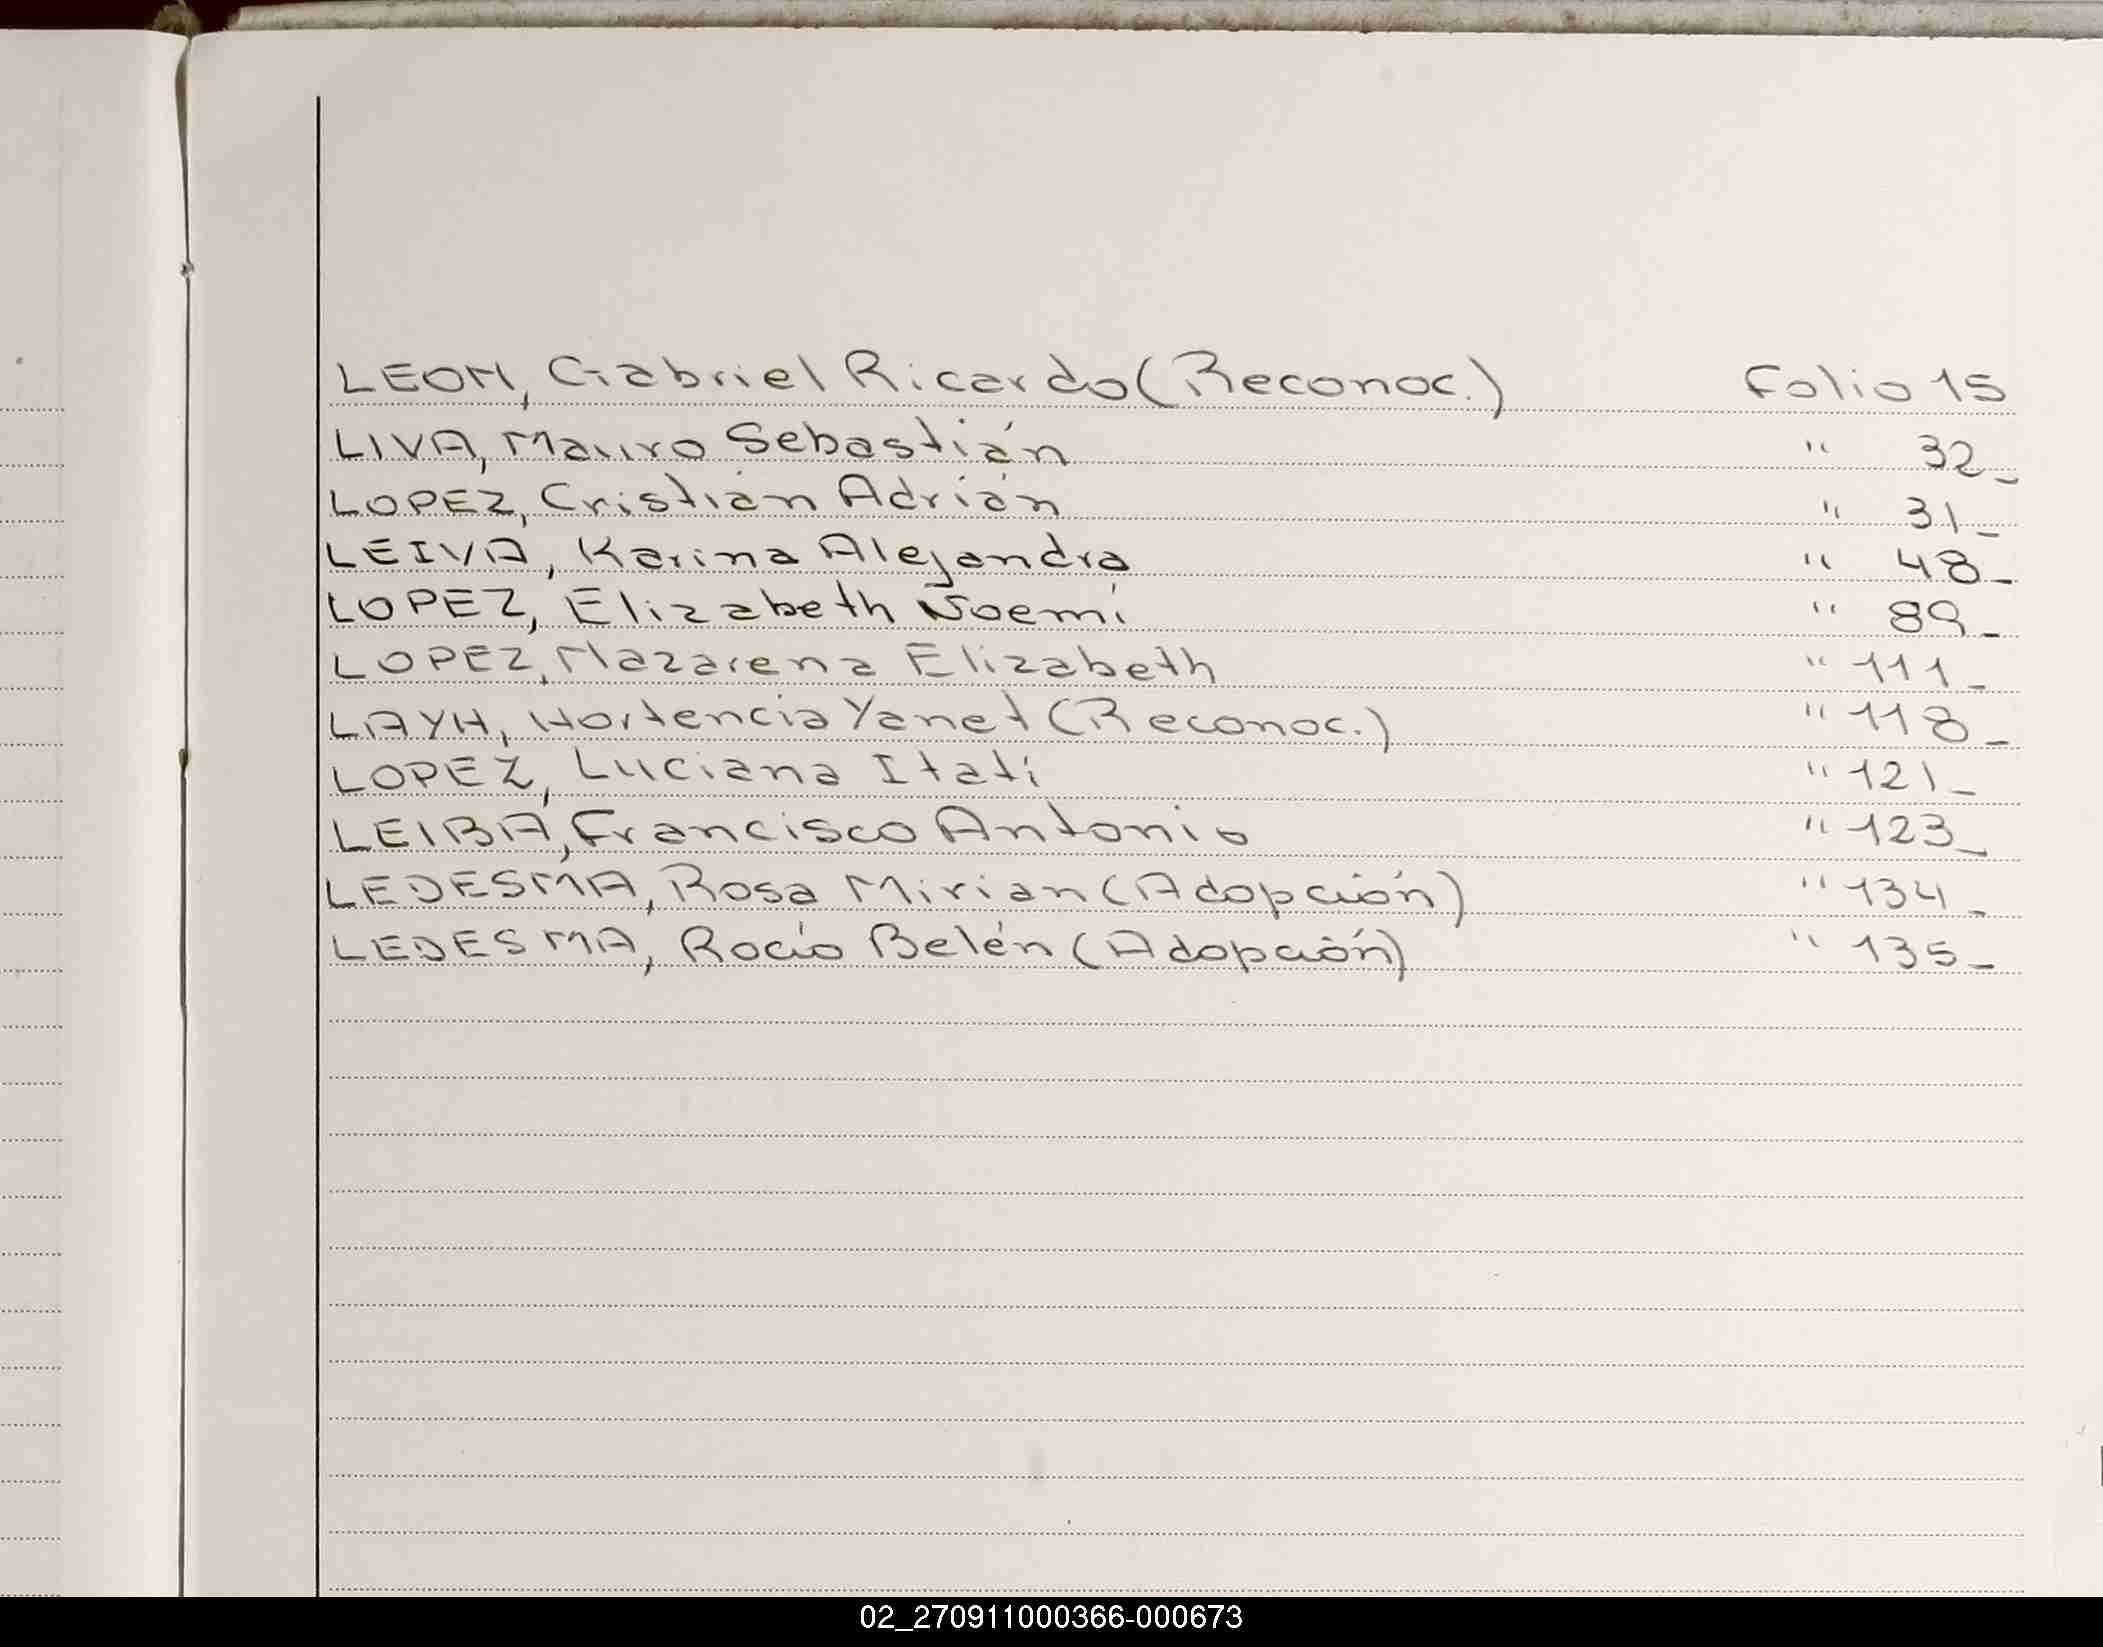 LEON, Gabriel Ricardo (Reconoc.) Folio 15
LIVA, Mauro Sebastián " 32_
LOPEZ, Cristian Adrián " 31_
LEIVA, Karina Alejandra " 48_
LOPEZ, Elizabeth Noemí " 89_
LOPEZ, Nazarena Elizabeth " 111_
LAYH, Hortencia Yanet (Reconoc.) " 118_
LOPEZ, Luciana Itatí " 121_
LEIBA, Francisco Antonio " 123_
LEDESMA, Rosa Mirian (Adopción) " 134_
LEDESMA, Rocío Belén (Adopción) " 135_
02_270911000366-000673